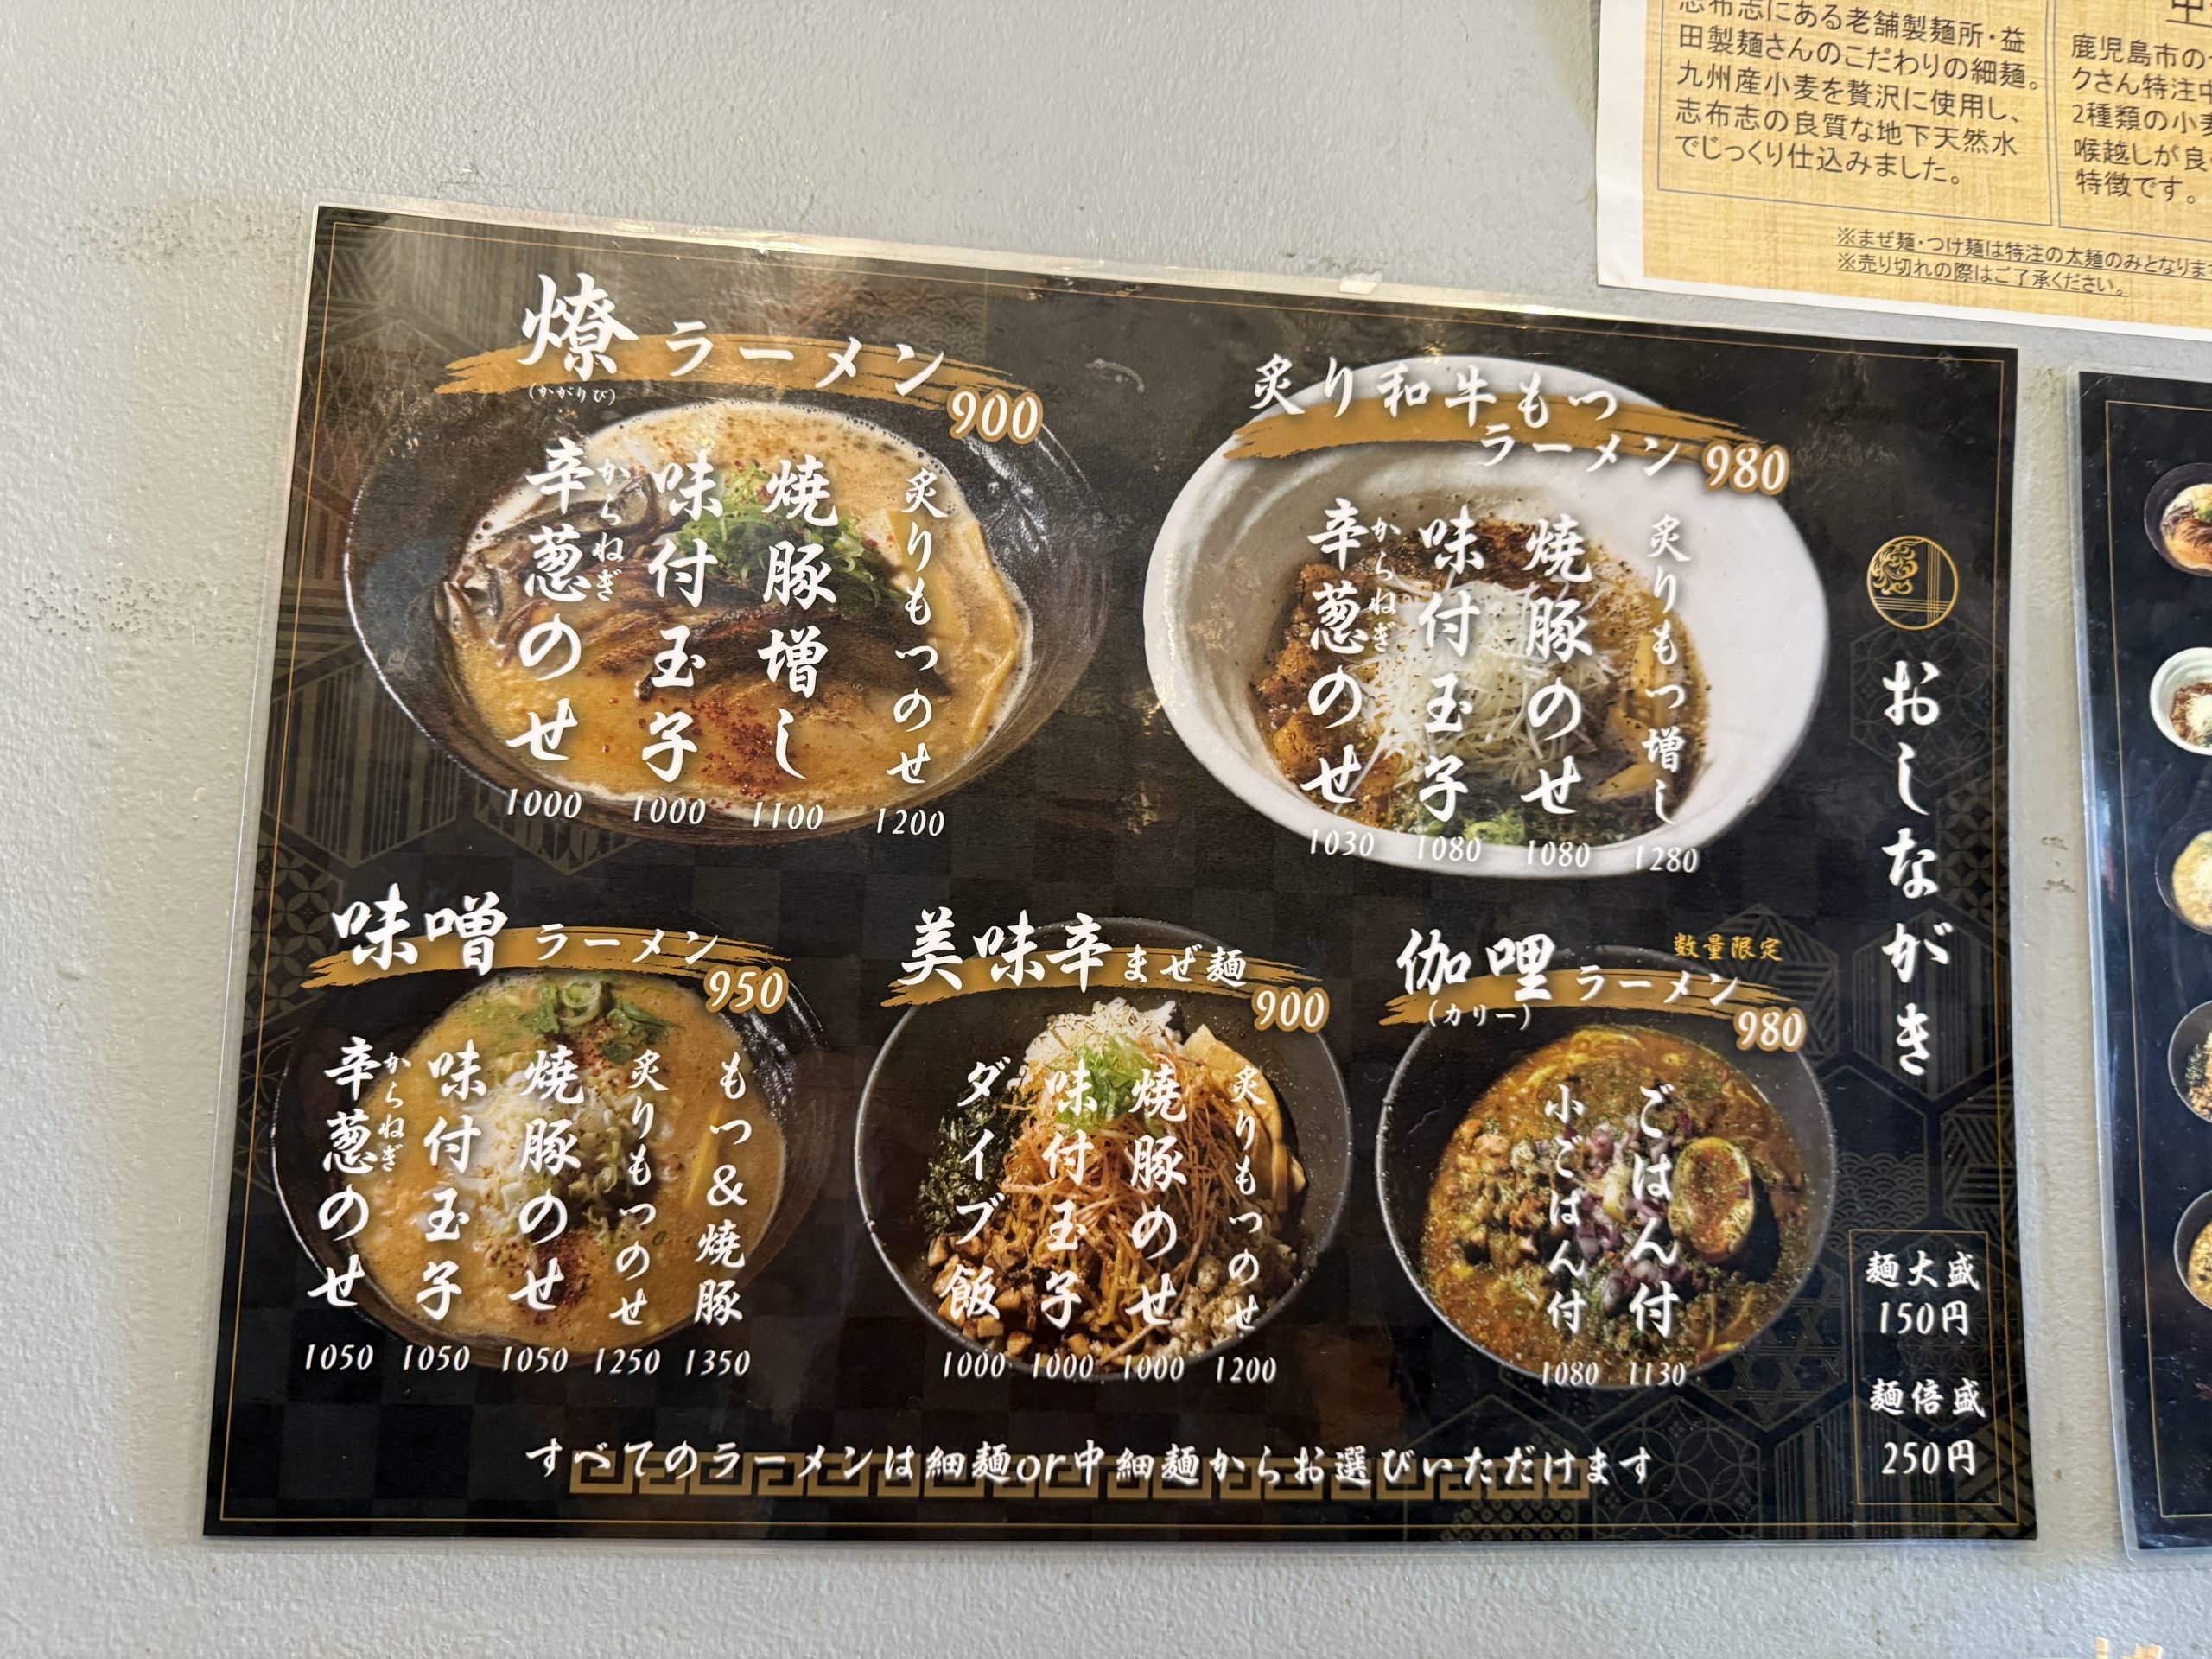 志布志にある老舗製麺所・益
田製麺さんのこだわりの細麺。
九州産小麦を贅沢に使用し、
志布志の良質な地下天然水
でじっくり仕込みました。
鹿児島市の
クさん特注中
2種類の小麦
喉越しが良
特徴です。
※まぜ麺・つけ麺は特注の太麺のみとなります
※売り切れの際はご了承ください。
おしながき
燎ラーメン
(かがりび)
900
辛葱のせ
からねぎ
1000
味付玉子
1000
焼豚増し
1100
炙りもつのせ
1200
炙り和牛もつ
ラーメン
980
辛葱のせ
からねぎ
1030
味付玉子
1080
焼豚のせ
1080
炙りもつ増し
1280
味噌ラーメン
950
辛葱のせ
からねぎ
1050
味付玉子
1050
焼豚のせ
1050
炙りもつのせ
1250
もつ&焼豚
1350
美味辛まぜ麺
900
ダイブ飯
1000
味付玉子
1000
焼豚のせ
1000
炙りもつのせ
1200
数量限定
伽哩ラーメン
(カリー)
980
小ごはん付
1080
ごはん付
1130
麺大盛
150円
麺倍盛
250円
すべてのラーメンは細麺or中細麺からお選びいただけます